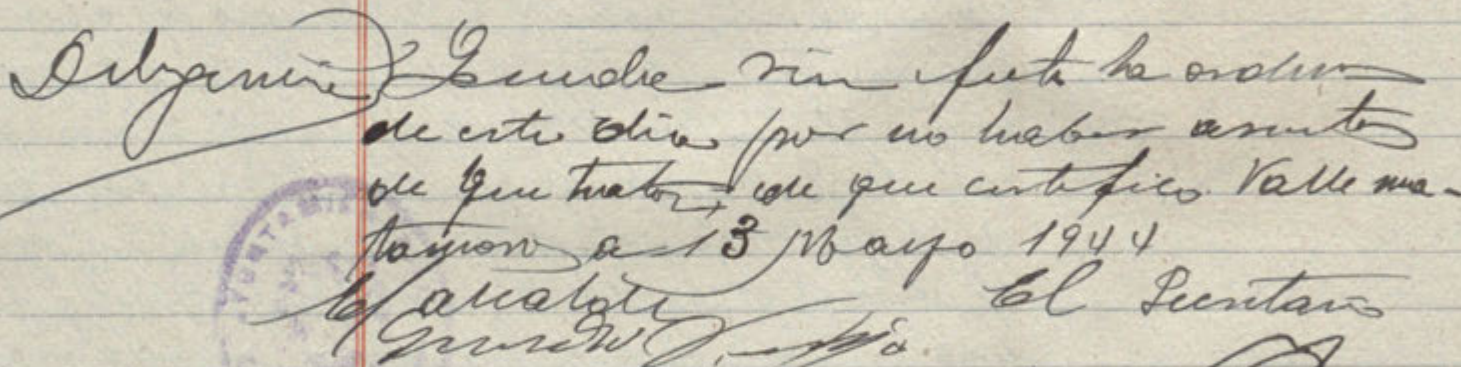 Diligencia) Queda sin efecto la orden
de este dia por no haber asuntos
de que tratar, de que certifico. Valle ma-
tamoros a 13 Mayo 1944
El alcalde El Secretario
AYUNTAMIE